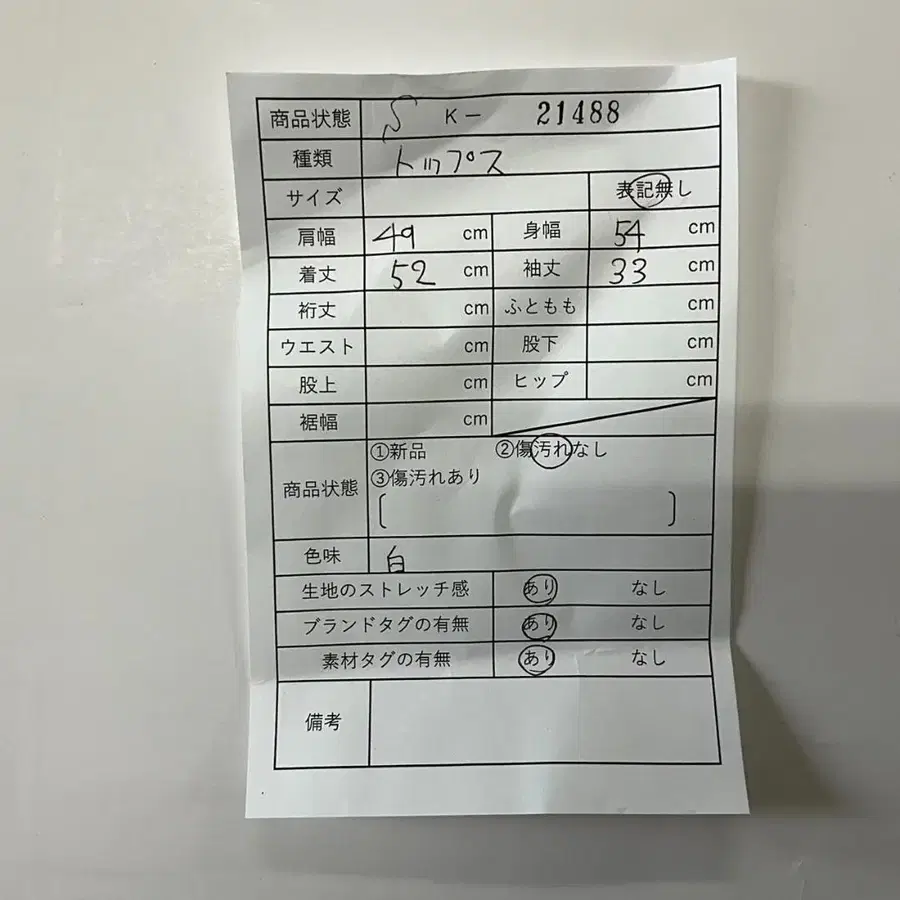 商品状態 S K- 21488
種類 トップス
サイズ 表記無し
肩幅 49 cm 身幅 54 cm
着丈 52 cm 袖丈 33 cm
裄丈 cm ふともも cm
ウエスト cm 股下 cm
股上 cm ヒップ cm
裾幅 cm
商品状態 ①新品 ②傷汚れなし
③傷汚れあり
[ ]
色味 白
生地のストレッチ感 あり なし
ブランドタグの有無 あり なし
素材タグの有無 あり なし
備考